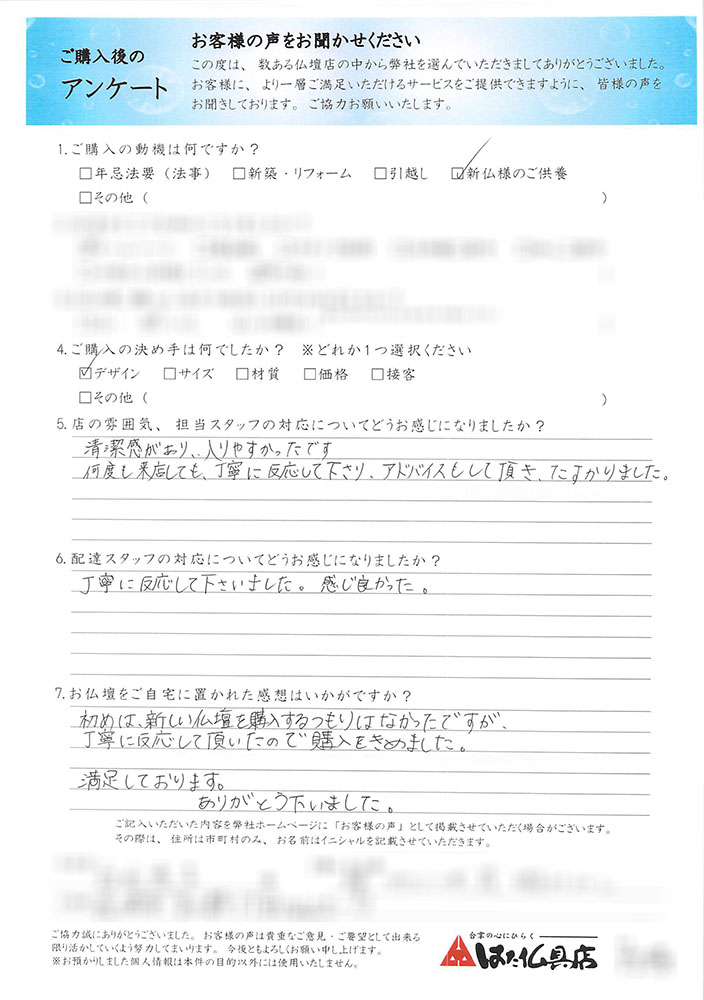 ご購入後の
アンケート
お客様の声をお聞かせください
この度は、数ある仏壇店の中から弊社を選んでいただきましてありがとうございました。
お客様に、より一層ご満足いただけるサービスをご提供できますように、皆様の声を
お聞きしております。ご協力お願いいたします。
1.ご購入の動機は何ですか?
□年忌法要(法事) □新築・リフォーム □引越し ☑新仏様のご供養
□その他( )
4.ご購入の決め手は何でしたか? ※どれか1つ選択ください
☑デザイン □サイズ □材質 □価格 □接客
□その他( )
5.店の雰囲気、担当スタッフの対応についてどうお感じになりましたか?
清潔感があり、入りやすかったです
何度も来店しても、丁寧に反応して下さり、アドバイスもして頂き、たすかりました。
6.配達スタッフの対応についてどうお感じになりましたか?
丁寧に反応して下さいました。感じ良かった。
7.お仏壇をご自宅に置かれた感想はいかがですか?
初めは、新しい仏壇を購入するつもりはなかったですが、
丁寧に反応して頂いたので購入をきめました。
満足しております。
ありがとう下いました。
ご記入いただいた内容を弊社ホームページに「お客様の声」として掲載させていただく場合がございます。
その際は、住所は市町村のみ、お名前はイニシャルを記載させていただきます。
ご協力誠にありがとうございました。お客様の声は貴重なご意見・ご要望として出来る
限り活かしていくよう努力してまいります。今後ともよろしくお願い申し上げます。
※お預かりしました個人情報は本件の目的以外には使用いたしません。
合掌の心にひらく
はた仏具店